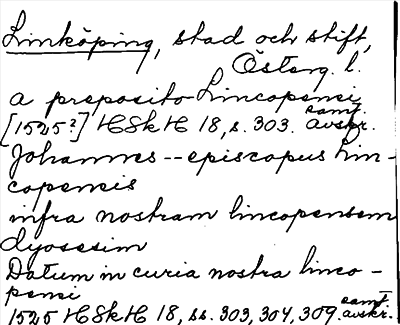 Linköping, stad och stift,
Österg. l.
a preposito Lincopensi
[1525?] HSkH 18, s. 303. samt. avskr.
Johannes -- episcopus lin-
copensis
infra nostram lincopensem
dyocesim
Datum in curia nostra linco-
pensi
1525 HSkH 18, ss. 303, 304, 309. samt. avskr.